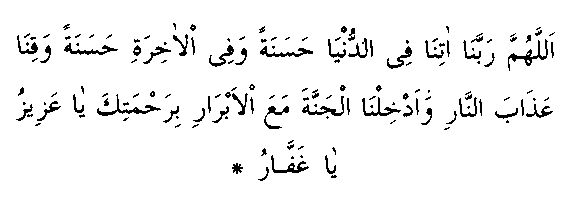 اَللَّهُمَّ رَبَّنَا اٰتِنَا فِى الدُّنْيَا حَسَنَةً وَفِى اْلاٰخِرَةِ حَسَنَةً وَقِنَا
عَذَابَ النَّارِ وَاَدْخِلْنَا الْجَنَّةَ مَعَ اْلاَبْرَارِ بِرَحْمَتِكَ يٰا عَزِيزُ
يٰا غَفَّـارُ *